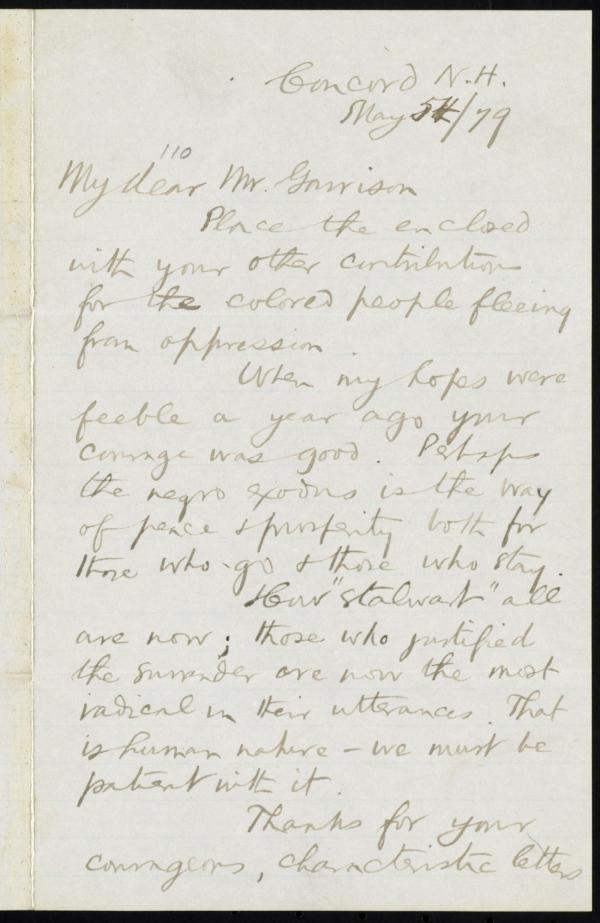 Concord N.H.
May 5th/79
110
My dear Mr. Garrison
Place the enclosed
with your other contributions
for the colored people fleeing
from oppression
When my hopes were
feeble a year ago your
courage was good. Perhaps
the negro exodus is the way
of peace & prosperity both for
those who go & those who stay.
How "stalwart" all
are now; those who justified
the surrender are now the most
radical in their utterances. That
is human nature - we must be
patient with it.
Thanks for your
courageous, characteristic letters